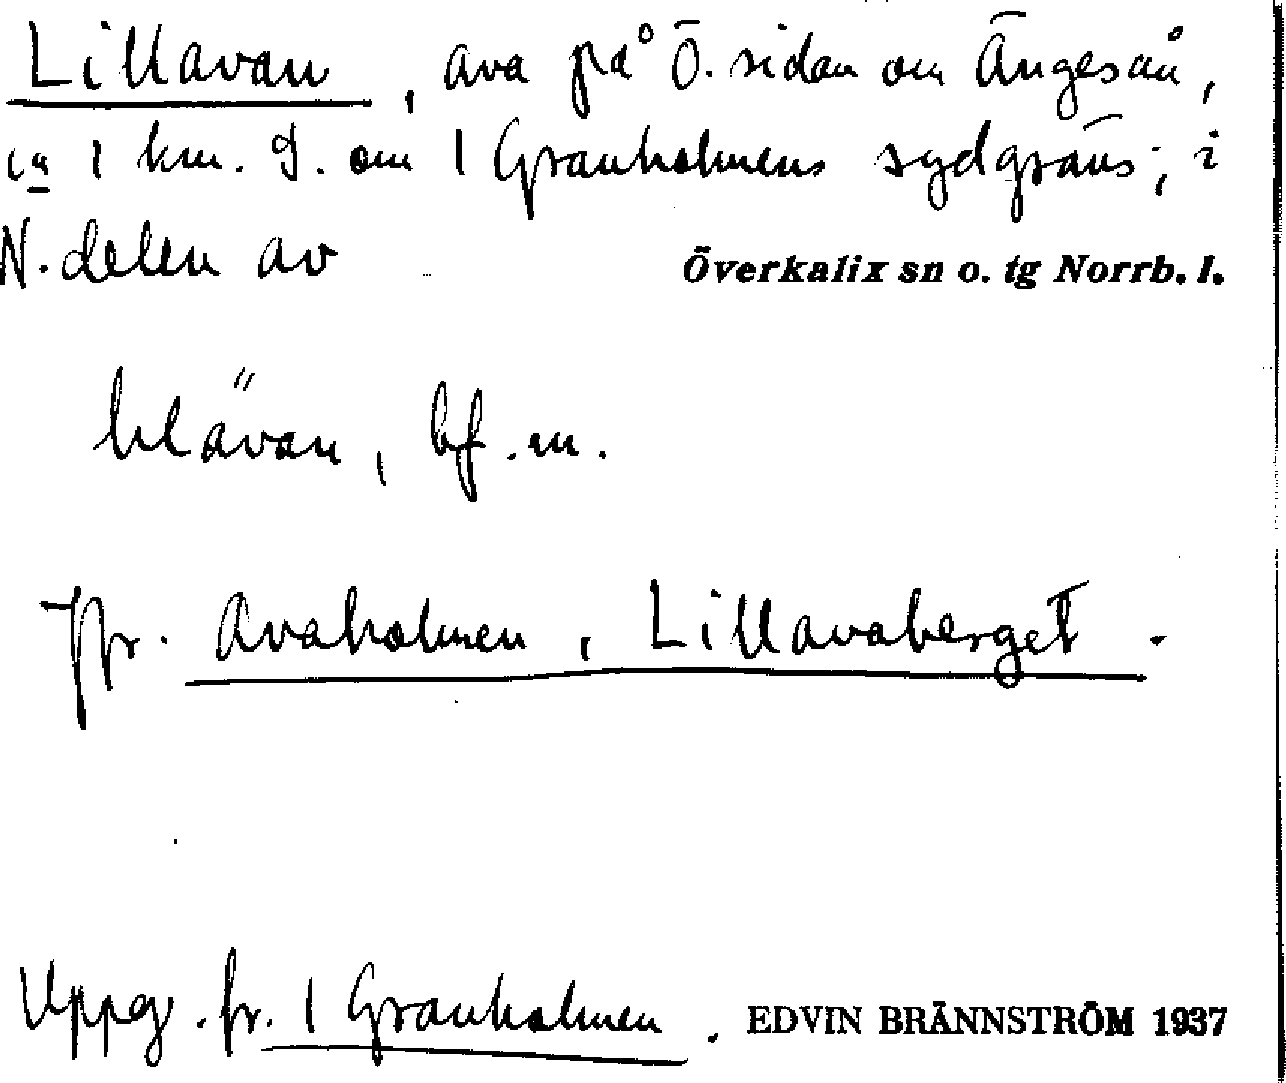 Lillavan, ava på Ö. sidan om Ängesån,
ca 1 km. S. om 1 Granholmens sydgräns; i
N. delen av Överkalix sn o. tg Norrb. l.
bf. m.
Jfr. Avaholmen, Lillavaberget.
Uppg. fr. 1 Granholmen. EDVIN BRÄNNSTRÖM 1937